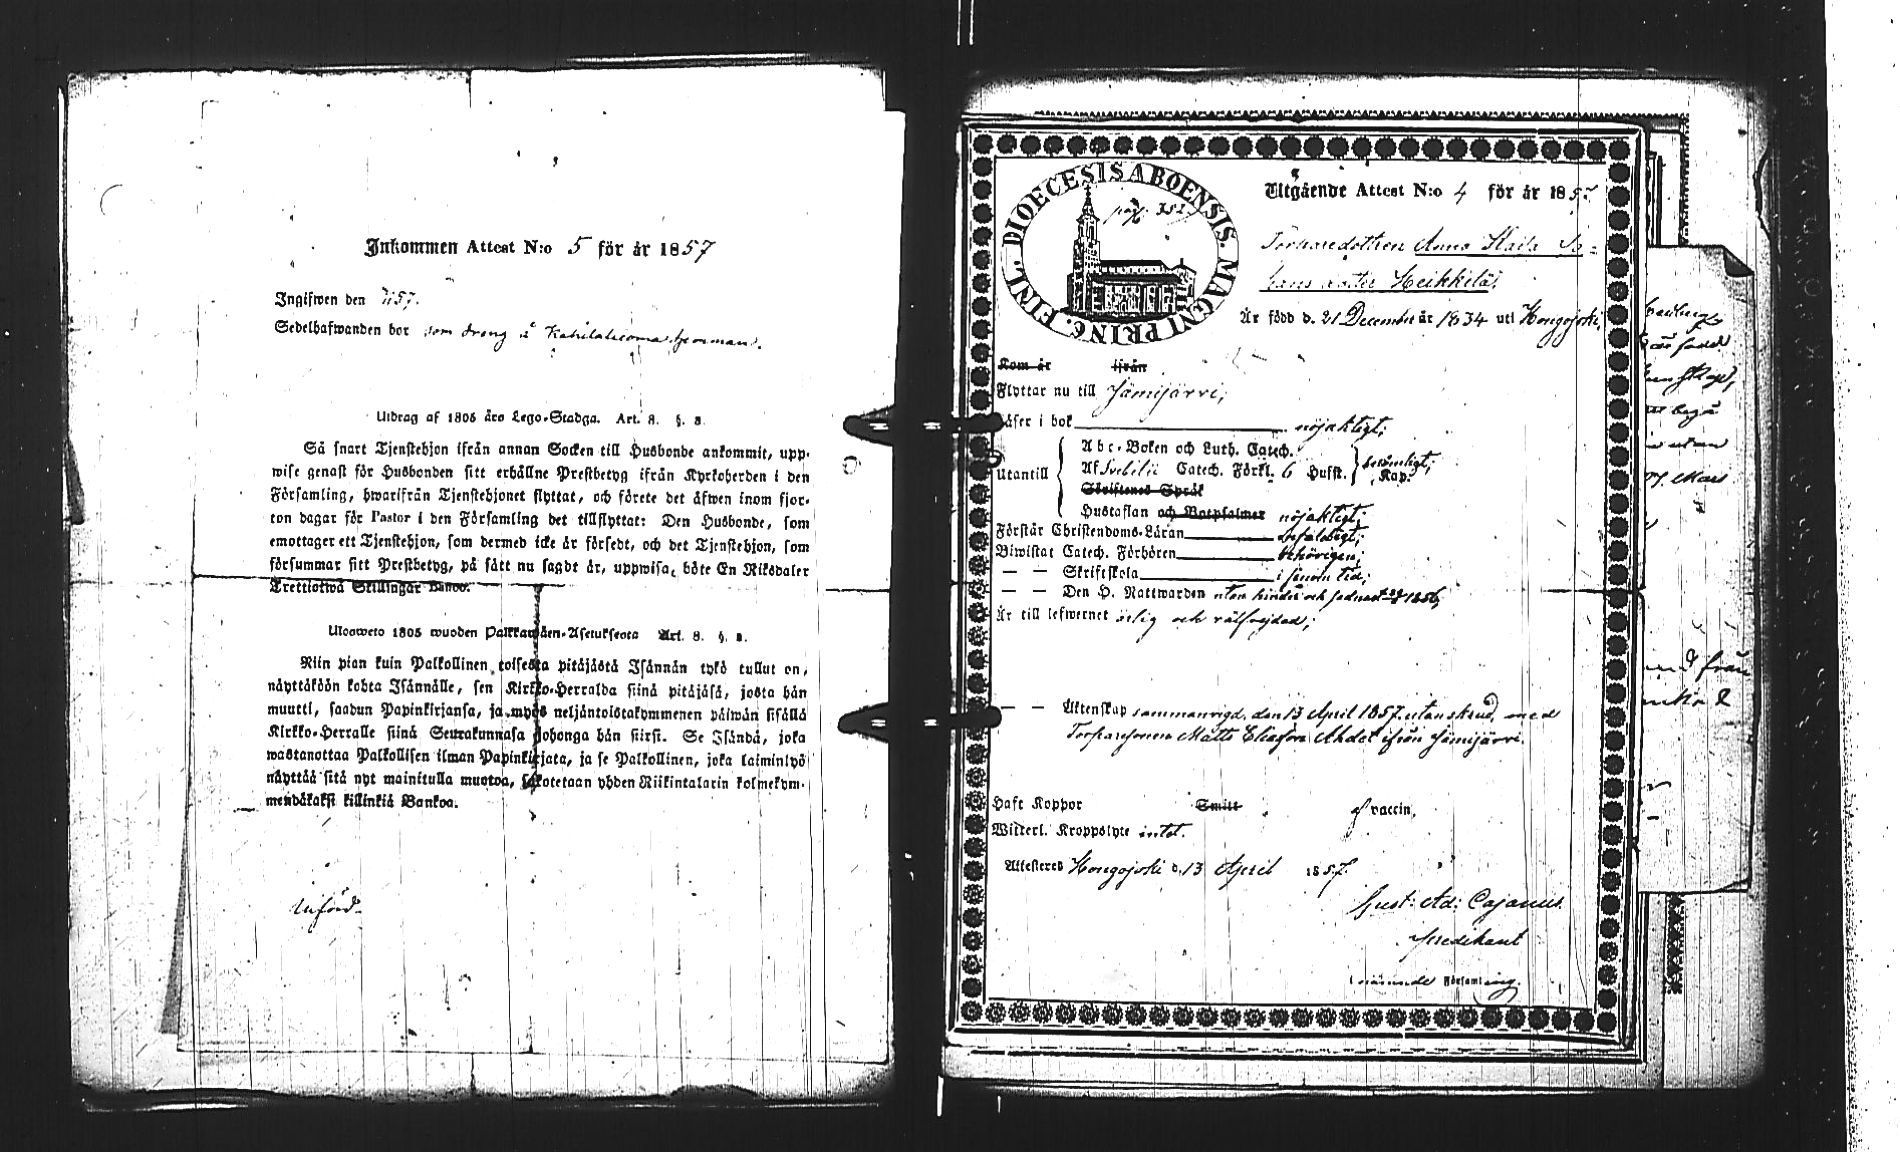 Inkommen Attest N:o 5 för år 1857
Ingifwen den
Sedelhafwanden bor som dreng å
Utdrag af 1805 års Lego-Stadga. Art. 8. §. 2.
Så snart Tjenstehjon ifrån annan Socken till Husbonde ankommit, upp-
wise genast för Husbonden sitt erhållne Prestbetyg ifrån Kyrkoherden i den
Församling, hwarifrån Tjenstehjonet flyttat, och förete det äfwen inom fjor-
ton dagar för Pastor i den Församling det tillflyttat: Den Husbonde, som
emottager ett Tjenstehjon, som dermed icke är försedt, och det Tjenstehjon, som
försummar sitt Prestbetyg, på sätt nu sagdt är, uppwisa, böte En Riksdaler
Trettiotwå Skillingar Banco.
Ulosweto 1805 wuoden Palkkawäen-Asetuksesta Art. 8. §. 2.
Niin pian kuin Palkollinen toisesta pitäjästä Isännän tykö tullut on,
näyttäköön kohta Isännälle, sen Kirkko-Herralda siinä pitäjäsä, josta hän
muutti, saadun Papinkirjansa, ja myös neljäntoistakymmenen päiwän sisällä
Kirkko-Herralle siinä Seurakunnasa johonga hän siirsi. Se Isändä, joka
wastanottaa Palkollisen ilman Papinkirjata, ja se Palkollinen, joka laiminlyö
näyttää sitä nyt mainitulla muotoa, sakotetaan yhden Riikintalarin kolmekym-
mendäkaksi killinkiä Bankoa.
Införd.
DIOECESIS ABOENSIS. MAGNI PRINC. FINL.
pag. 352
Utgående Attest N:o 4 för år 1857
Torparedottren Anna Kaisa Jo=
hans dotter Heikkilä,
Är född d. 21 December år 1834 uti Hongojoki,
Kom år ifrån
Flyttar nu till Jämijärvi,
Läser i bok nöjaktigt,
Utantill
Abc-Boken och Luth. Catech.
Af Svebilii Catech. Förkl. 6 Hufst. berömligt, Kap.
Skriftenes Språk
Hustaflan och Botpsalmer nöjaktigt,
Förstår Christendoms-Läran enfaldigt,
Biwistat Catech. Förhören behörigen,
— — Skriftskola i sinom tid,
— — Den H. Nattwarden utan hinder och sednast 1856,
Är till lefwernet ärlig och rättsejdad,
— — Äktenskap sammanvigd, den 13 April 1857 utan skrud, med
Torparesonen Matts Eliasson Ahdet ifrån Jämijärvi.
Haft Koppor Smitt af vaccin,
Witterl. Kroppslyte intet.
Attesteres Hongojoki d. 13 April 1857.
Gust: Ad: Cajanus.
Predikant
Församling.